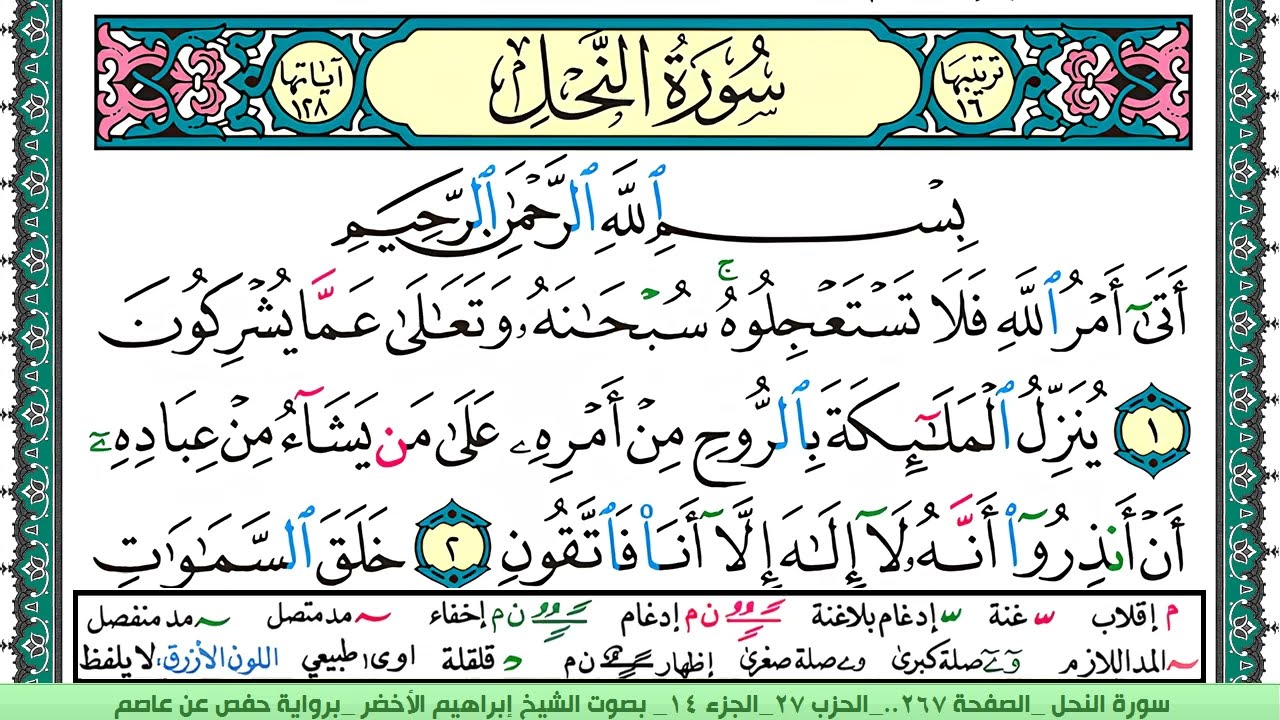 ترتيبها ١٦
سُورَةُ النَّحْلِ
آياتها ١٢٨
بِسْمِ ٱللَّهِ ٱلرَّحْمَٰنِ ٱلرَّحِيمِ
أَتَىٰٓ أَمْرُ ٱللَّهِ فَلَا تَسْتَعْجِلُوهُ ۚ سُبْحَٰنَهُۥ وَتَعَٰلَىٰ عَمَّا يُشْرِكُونَ
١ يُنَزِّلُ ٱلْمَلَٰٓئِكَةَ بِٱلرُّوحِ مِنْ أَمْرِهِۦ عَلَىٰ مَن يَشَآءُ مِنْ عِبَادِهِۦٓ
أَنْ أَنذِرُوٓا۟ أَنَّهُۥ لَآ إِلَٰهَ إِلَّآ أَنَا۠ فَٱتَّقُونِ ٢ خَلَقَ ٱلسَّمَٰوَٰتِ
م إقلاب ّ غنة ّ إدغام بلاغنة ـًـٍـٌ ن م إدغام ـًـٍـٌ ن م إخفاء ~ مد متصل ~ مد منفصل
~ المد اللازم وۤ ےۤ صلة كبرى و ے صلة صغرى إظهار ـًـٍـٌ ن م د قلقلة ا و ى طبيعي اللون الأزرق: لا يلفظ
سورة النحل _الصفحة ٢٦٧.._الحزب ٢٧_الجزء ١٤_ بصوت الشيخ إبراهيم الأخضر _برواية حفص عن عاصم